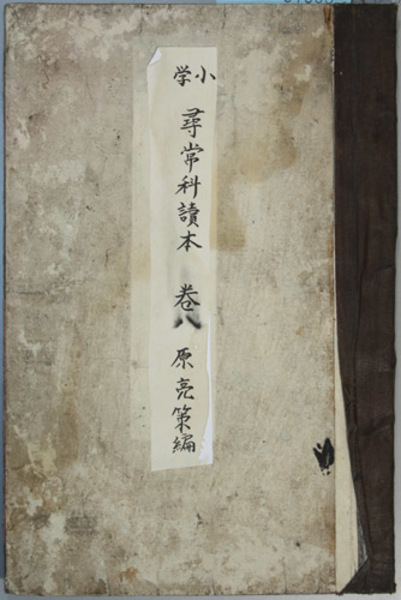 小学尋常科讀本 卷八 原亮策編